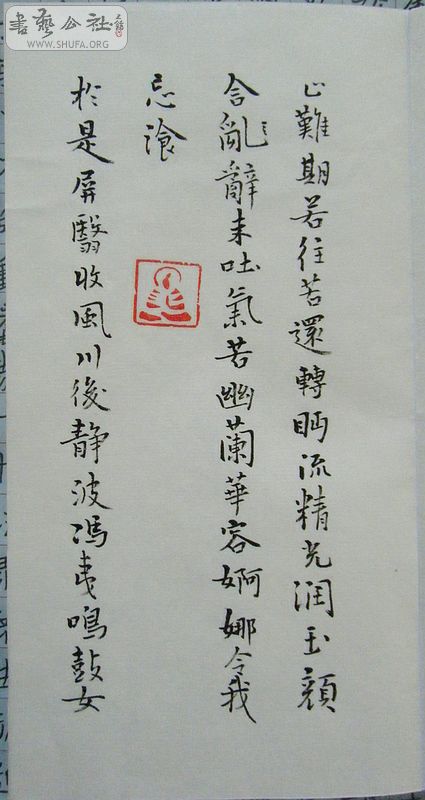 書藝公社
WWW.SHUFA.ORG
止難期若往若還轉眄流精光潤玉顏
含亂辭未吐氣若幽蘭華容婀娜令我
忘湌
於是屏翳收風川後静波馮夷鳴鼓女